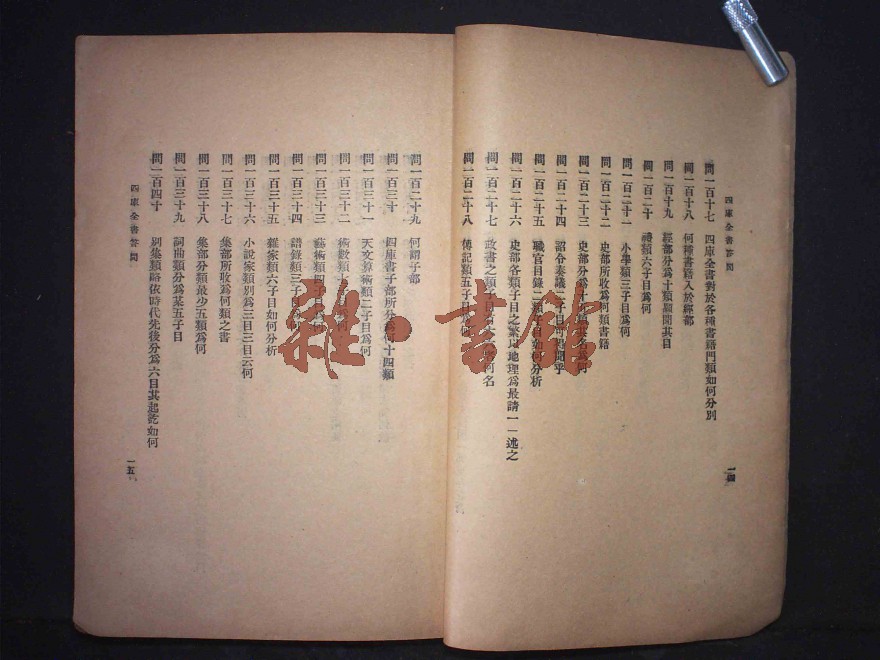 四庫全書答問
問一百十七　四庫全書對於各種書籍門類如何分別
問一百十八　何種書籍入於經部
問一百十九　經部分為十類願聞其目
問一百二十　禮類六子目為何
問一百二十一　小學類三子目為何
問一百二十二　史部所收為何類書籍
問一百二十三　史部分為十五類其名為何
問一百二十四　詔令奏議二子目可得聞乎
問一百二十五　職官目錄二類子目如何分析
問一百二十六　史部各類子目之繁以地理為最請一一述之
問一百二十七　政書之類子目何名
問一百二十八　傳記類五子目為何
一四
問一百二十九　何謂子部
問一百三十　四庫書子部所分為何十四類
問一百三十一　天文算術類二子目為何
問一百三十二　術數類為何
問一百三十三　藝術類四子目為何
問一百三十四　譜錄類三子目為何
問一百三十五　雜家類六子目如何分析
問一百三十六　小說家類別為三目三目云何
問一百三十七　集部所收為何類之書
問一百三十八　集部分類最少五類為何
問一百三十九　詞曲類分為某五子目
問一百四十　別集類略依時代先後分為六目其起訖如何
四庫全書答問
一五
雜·書館